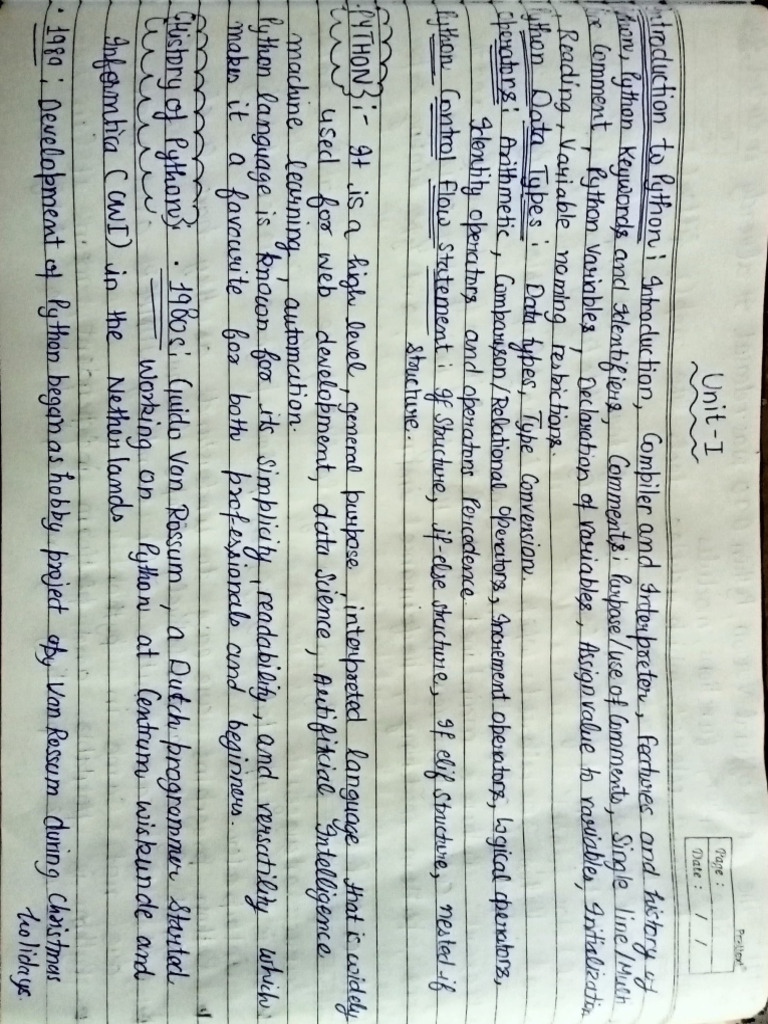 Unit-I
Page:
Date: / /
Introduction to Python: Introduction, Compiler and Interpretor, Features and history of
Python, Python Keywords and Identifiers, Comments: Purpose/use of Comments, Single line/Multi
line Comment, Python Variables, Declaration of variables, Assign value to variables, Initialization
Reading, Variable naming restrictions.
Python Data Types: Data types, Type Convension.
Operators: Arithmetic, Comparison/Relational operators, Increment operators, Logical operators,
Identity operators and operators Percedence.
Python Control flow statement: If Structure, if-else structure, If elif structure, nested if
Structure.
PYTHON :- It is a high level, general purpose, interpreted language that is widely
used for web development, data science, Artifitial Intelligence
machine learning, automation.
Python language is known for its simplicity, readability, and versatility which
makes it a favourite for both professionals and beginners.
History of Python • 1980s: Guido Van Rossum, a Dutch programmer started
Working on Python at Centrum wiskunde and
Informtica (CWI) in the Netherlands
• 1989: Development of Python began as hobby project by Van Rossum during Christmas
holidays.